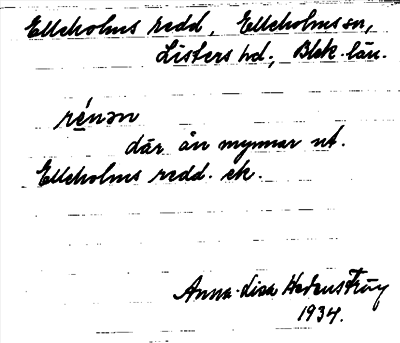 Elleholms redd, Elleholms sn,
Listers hd., Blek. län.
rénən
där ån mynnar ut.
Elleholms redd. ek.
Anna-Lisa Hedenströy
1934.